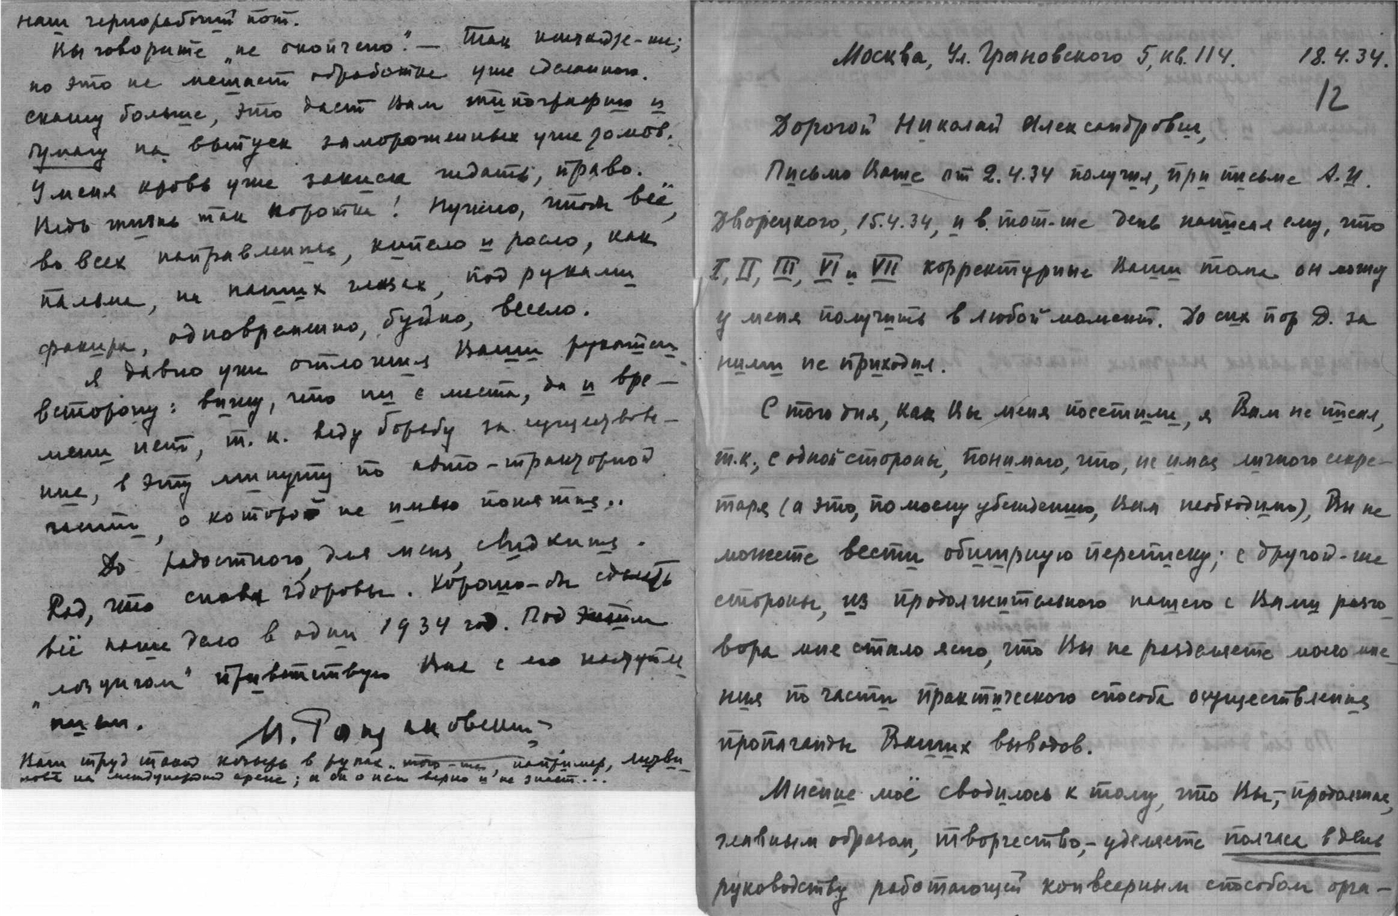 наш чернорабочий пот.
Вы говорите "не окончено." — Так никогда-же;
но это не мешает обработке уже сделанного.
скажу больше, это даст Вам типографию и
бумагу на выпуск замороженных уже томов.
У меня кровь уже закисла ждать, право.
Ведь жизнь так коротка! Нужно, чтоб всё,
во всех направлениях, кипело и росло, как
пальма, на наших глазах, под руками
факира, одновременно, буйно, весело.
Я давно уже отложил Ваши рукописи
в сторону: вижу, что ни с места, да и вре-
мени нет, т.к. веду борьбу за существова-
ние, в эту минуту по авто-тракторной
части, о которой не имею понятия..
До радостного, для меня, свидания.
Рад, что снова здоровы. Хорошо-бы сделать
всё наше дело в один 1934 год. Под этим
"лозунгом" приветствую Вас с его наступле
нием.
Наш труд такой козырь в руках того-же, например,
на международной арене; а он о нем верно и не знает...
Москва, Ул. Грановского 5, кв. 114. 18.4.34.
12
Дорогой Николай Александрович,
Письмо Ваше от 2.4.34 получил, при письме А.И.
Дворецкого, 15.4.34, и в тот-же день написал ему, что
I, II, III, VI и VII корректурные Ваши тома он может
у меня получить в любой момент. До сих пор Д. за
ними не приходил.
С того дня, как Вы меня посетили, я Вам не писал,
т.к., с одной стороны, понимаю, что, не имея личного секре-
таря (а это, по моему убеждению, Вам необходимо), Вы не
можете вести обширную переписку; с другой-же
стороны, из продолжительного нашего с Вами разго
вора мне стало ясно, что Вы не разделяете моего мне
ния по части практического способа осуществления
пропаганды Ваших выводов.
Мнение моё сводилось к тому, что Вы,- продолжая,
главным образом, творчество,- уделяете полчаса в день
руководству работающей конвеерным способом орга-